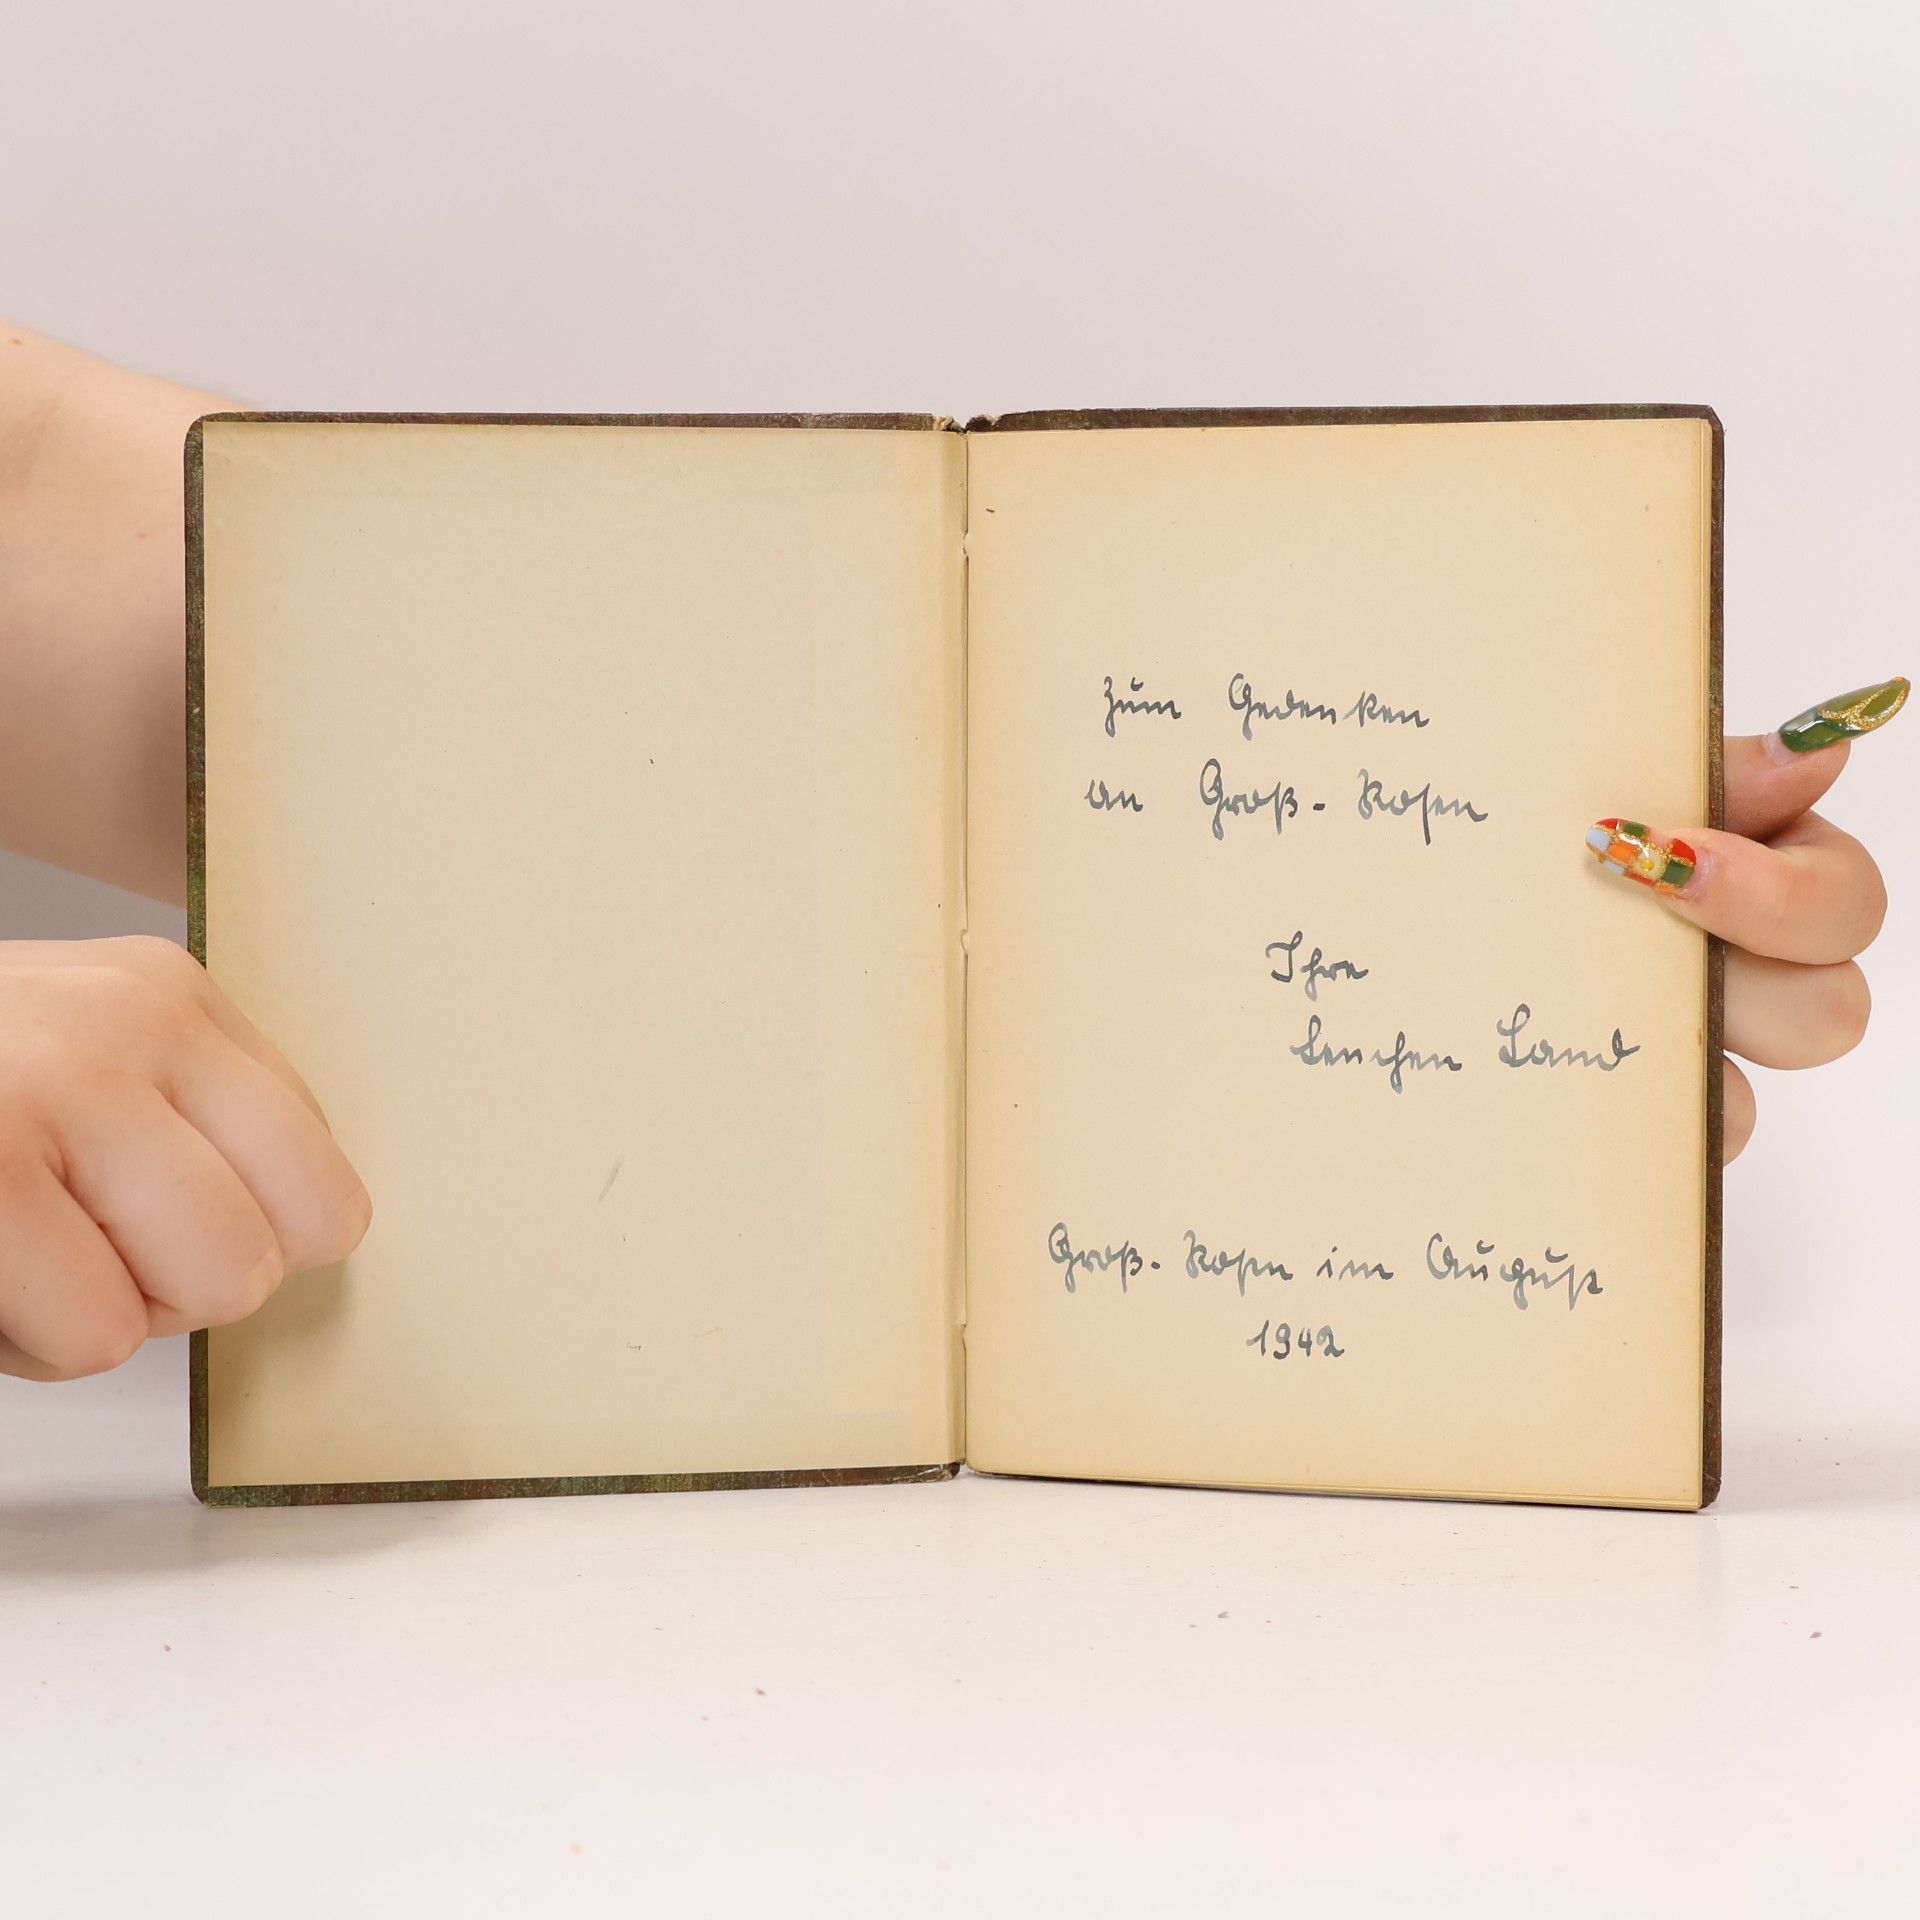 Zum Gedenken
an Groß-Rosen
Ihre
Lenchen Land
Groß-Rosen im August
1942